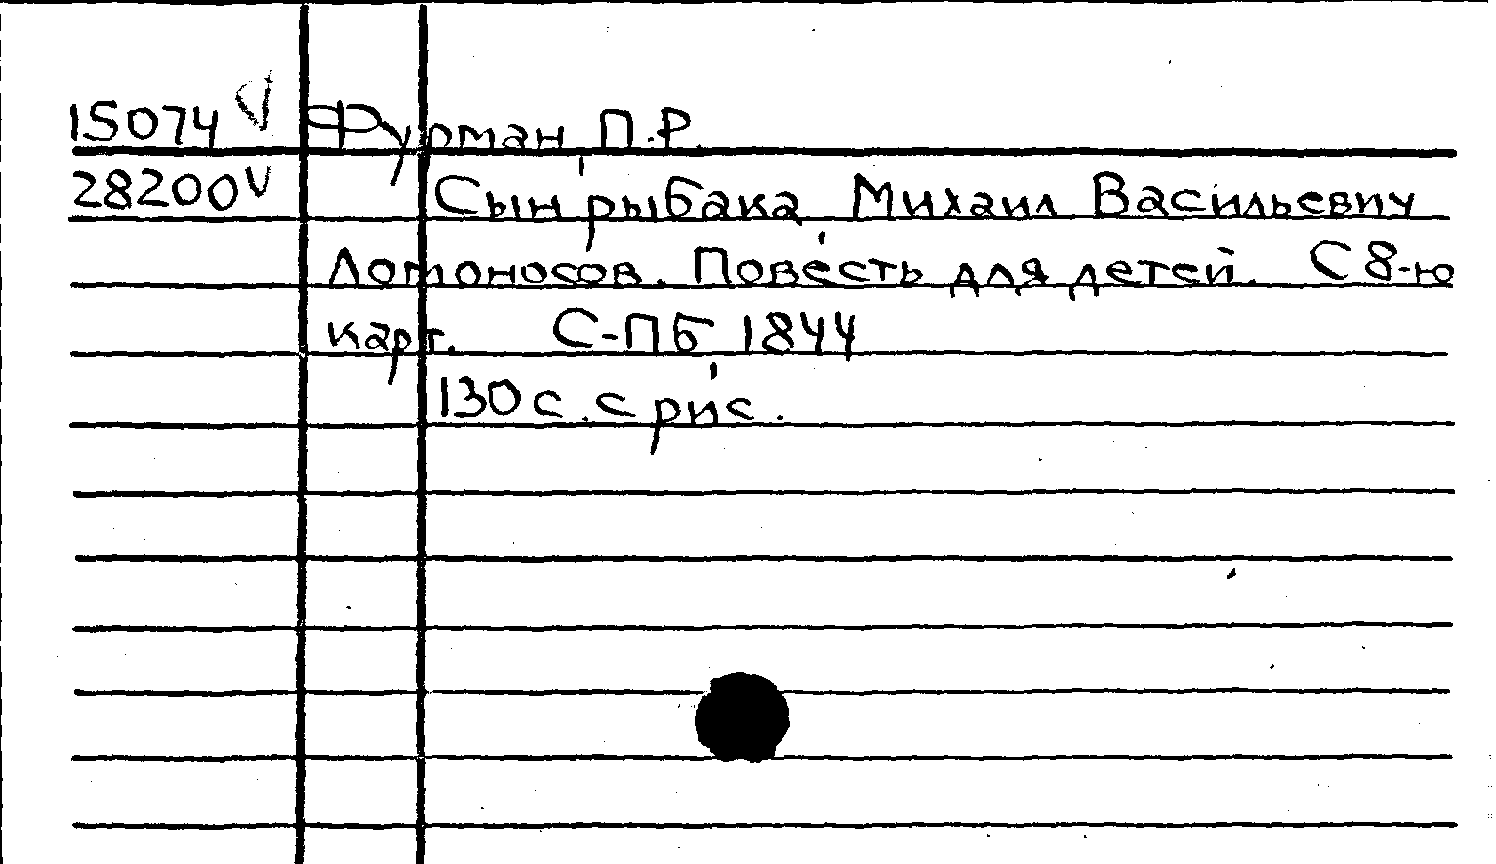 15074 V Фурман, П.Р.
28200 V Сын рыбака Михаил Васильевич
Ломоносов. Повесть для детей. С 8-ю
карт. С-ПБ 1844
130 с. с рис.